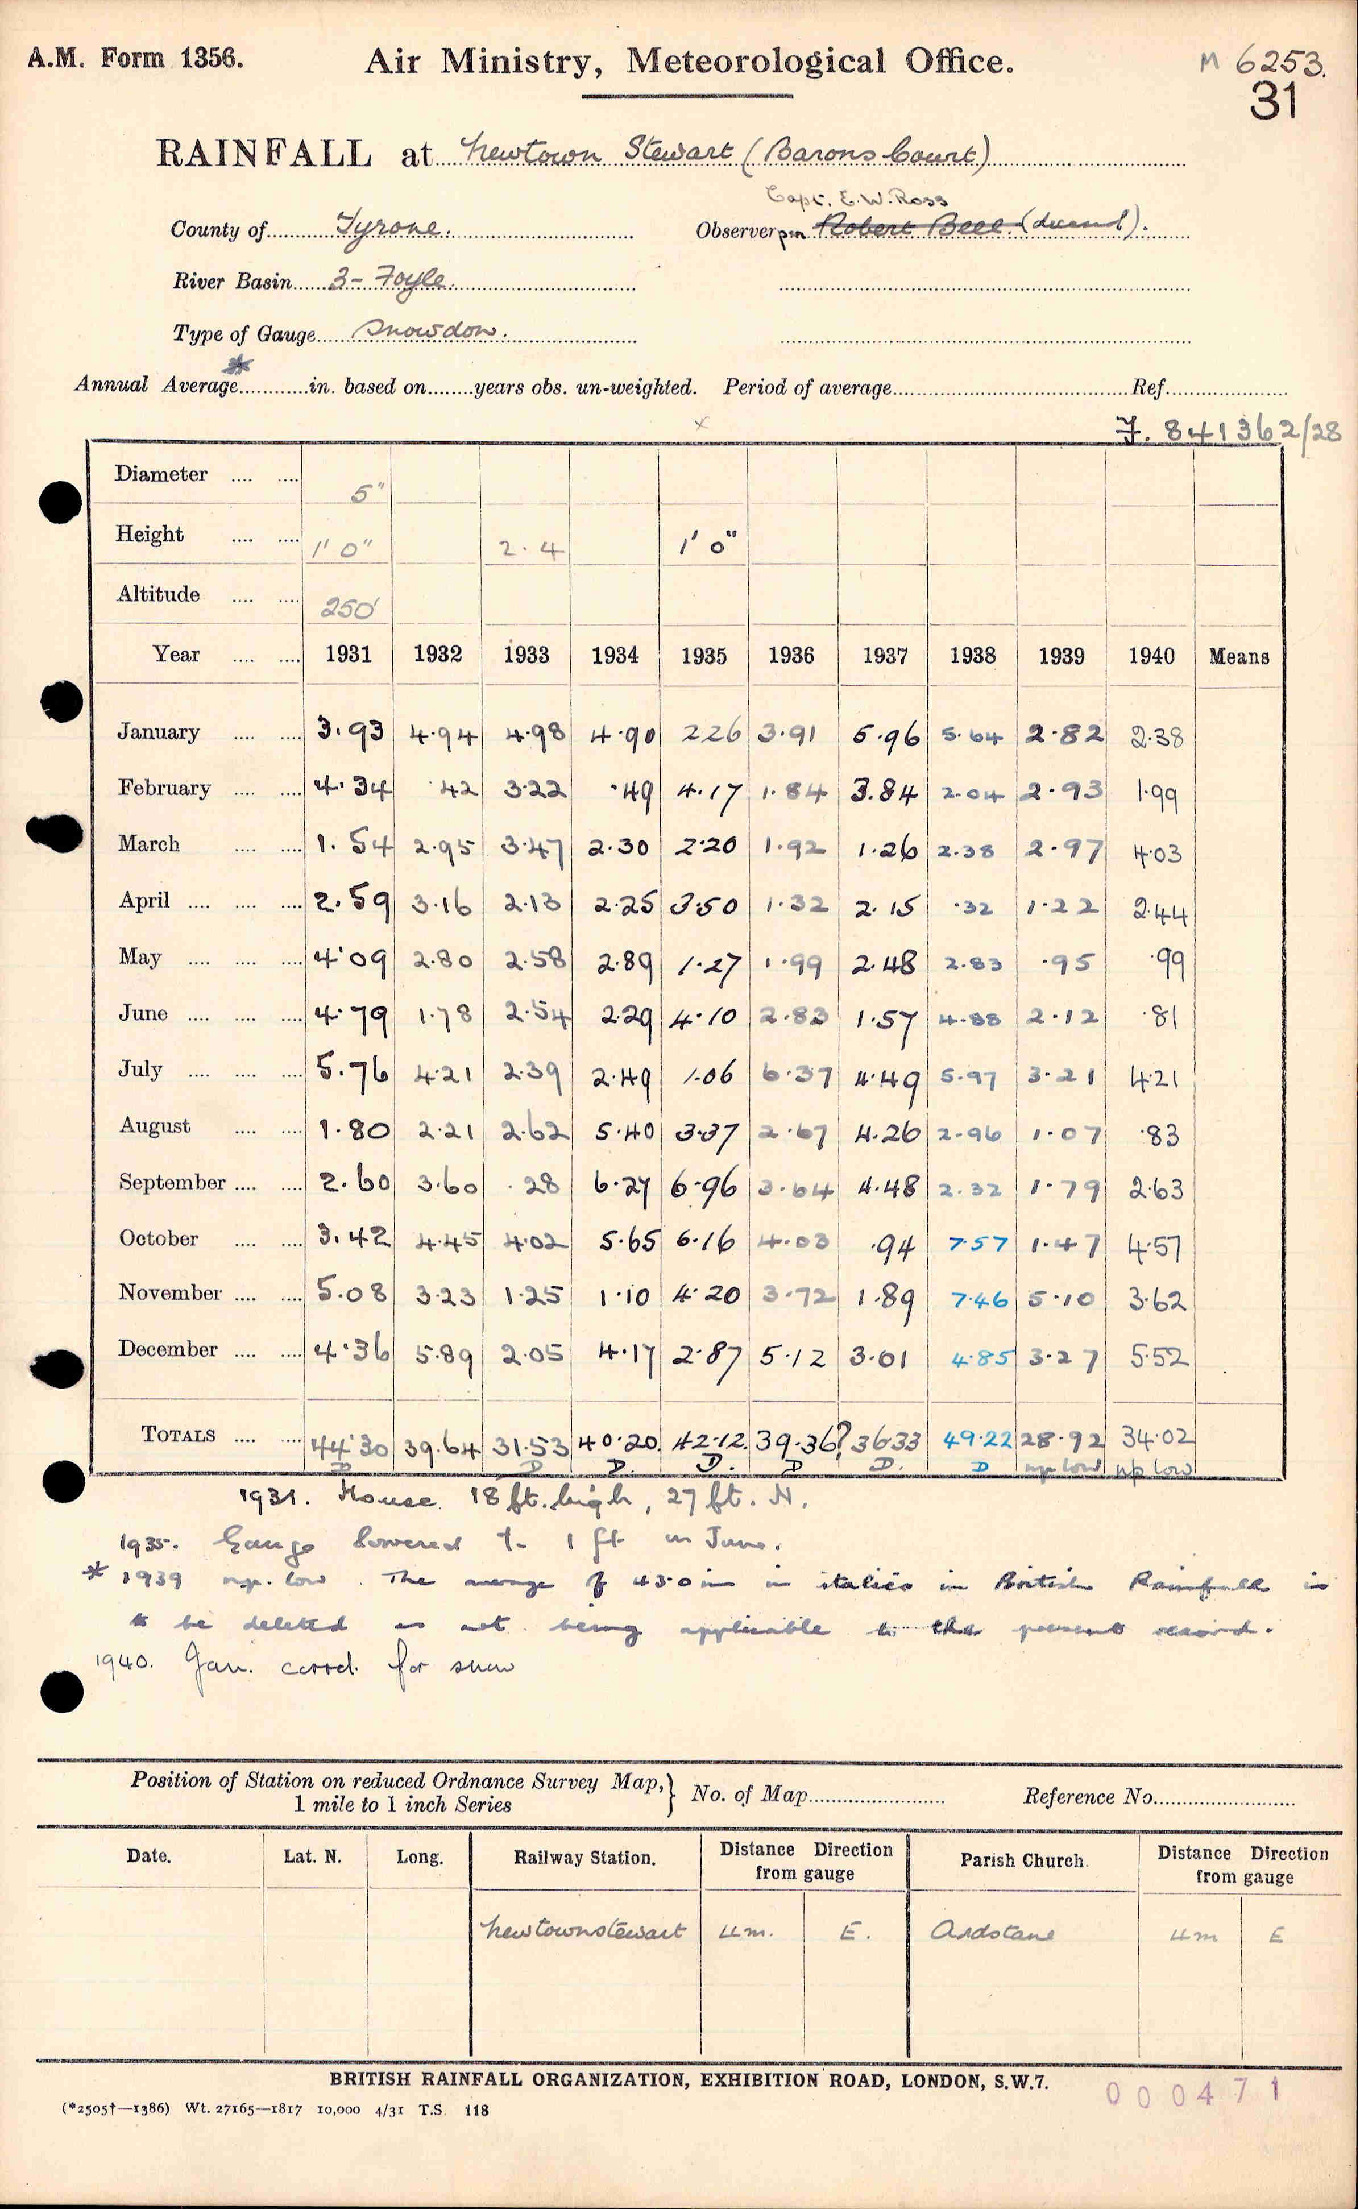 A.M. Form 1356.
Air Ministry, Meteorological Office.
M 6253.
31
RAINFALL at Newtown Stewart (Barons Court)
Capt. E.W. Ross
County of Tyrone. Observer Robert Bell
River Basin 3 - Foyle.
Type of Gauge Snowdon.
Annual Average * in. based on years obs. un-weighted. Period of average Ref.
x
I. 841362/28
Diameter .... .... 5"
Height .... .... 1' 0" 2.4 1' 0"
Altitude .... .... 250'
Year .... .... 1931 1932 1933 1934 1935 1936 1937 1938 1939 1940 Means
January .... .... 3.93 4.94 4.98 4.90 2.26 3.91 5.96 5.64 2.82 2.38
February .... .... 4.34 .42 3.22 .49 4.17 1.84 3.84 2.04 2.93 1.99
March .... .... 1.54 2.95 3.47 2.30 2.20 1.92 1.26 2.38 2.97 4.03
April .... .... .... 2.59 3.16 2.13 2.25 3.50 1.32 2.15 .32 1.22 2.44
May .... .... .... 4.09 2.80 2.58 2.89 1.27 1.99 2.48 2.83 .95 .99
June .... .... .... 4.79 1.78 2.54 2.29 4.10 2.83 1.57 4.88 2.12 .81
July .... .... .... 5.76 4.21 2.39 2.49 1.06 6.37 4.49 5.97 3.21 4.21
August .... .... 1.80 2.21 2.62 5.40 3.37 2.67 4.26 2.96 1.07 .83
September .... .... 2.60 3.60 .28 6.27 6.96 3.64 4.48 2.32 1.79 2.63
October .... .... 3.42 4.45 4.02 5.65 6.16 4.03 .94 7.57 1.47 4.57
November .... .... 5.08 3.23 1.25 1.10 4.20 3.72 1.89 7.46 5.10 3.62
December .... .... 4.36 5.89 2.05 4.17 2.87 5.12 3.01 4.85 3.27 5.52
TOTALS .... .... 44.30 39.64 31.53 40.20. 42.12. 39.36? 36.33 49.22 28.92 34.02
D D D. D. D D. D low low
1931. House 18 ft. high, 27 ft. N.
1935. Gauge lowered to 1 ft in June.
* 1939 low. The average of 43.0 in in italics in British Rainfall is
to be deleted as not being applicable to the present record.
1940. Jan. corrd. for snow
Position of Station on reduced Ordnance Survey Map, } No. of Map Reference No.
1 mile to 1 inch Series
Date. Lat. N. Long. Railway Station. Distance Direction from gauge Parish Church Distance Direction from gauge
Newtownstewart 4m. E. Ardstane 4m E
BRITISH RAINFALL ORGANIZATION, EXHIBITION ROAD, LONDON, S.W.7.
000471
(*2505†—1386) Wt. 27165—1817 10,000 4/31 T.S. 118